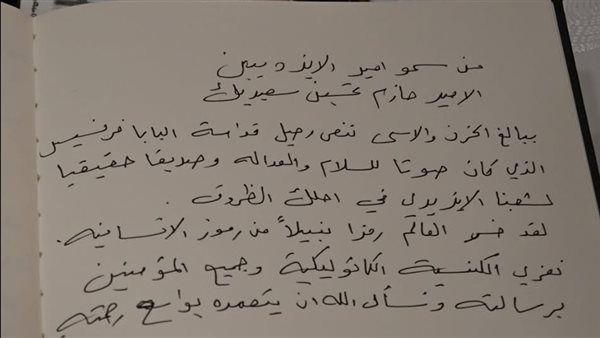 من سمو امير الايزديين
الامير حازم تحسين سعيد بك
ببالغ الحزن والاسى ننعى رحيل قداسة البابا فرنسيس
الذي كان صوتا للسلام والعداله وصديقا حقيقيا
لشعبنا الايزيدي في احلك الظروف .
لقد خسر العالم رمزا نبيلاً من رموز الانسانيه .
نعزي الكنيسة الكاثوليكية وجميع المؤمنين
برسالته ونسأل الله ان يتغمده بواسع رحمته